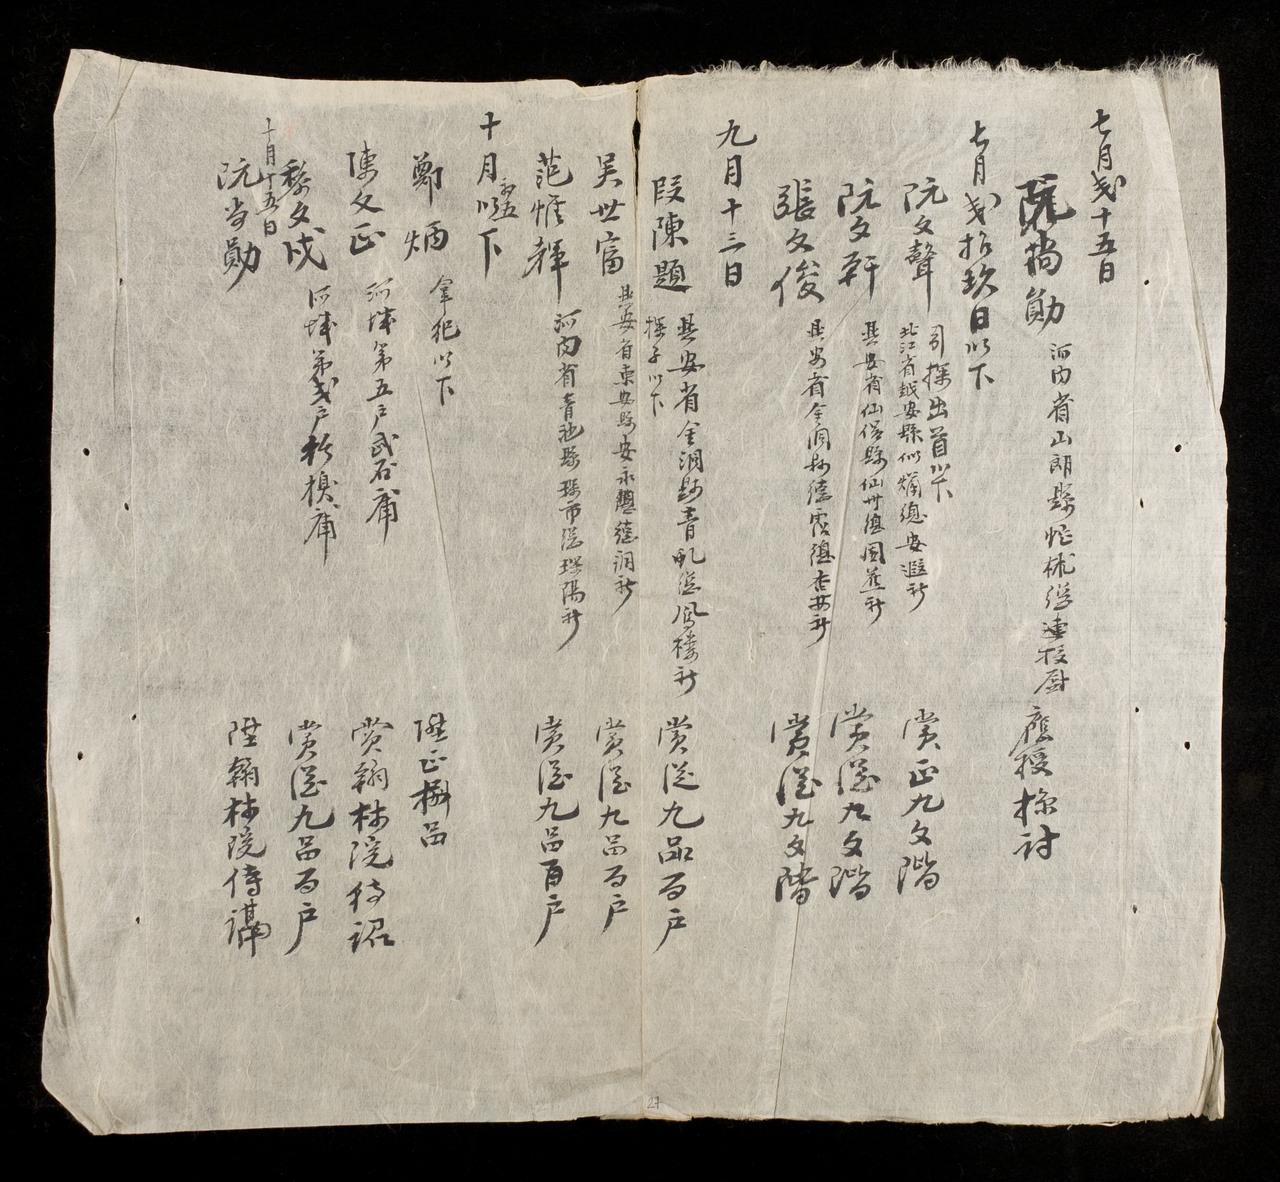 七月弍十五日
阮尚勛 河內省山朗縣 應授檢討
七月弍拾玖日以下
引探出首以下
阮文聲 北江省越安縣 總安遐社 賞正九文階
阮文軒 興安省仙侶縣仙州總 社 賞從九文階
張文俊 興安省金洞縣德 總 社 賞從九文階
九月十三日
段陳題 興安省金洞縣青 總鳳樓社 賞從九品百戶
探子以下
吳世富 興安省東安縣安永總德洞社 賞從九品百戶
范惟輝 河內省青池縣 市總 陽社 賞從九品百戶
十月初五以下
拿犯以下
鄭炳 陞正捌品
陳文正 河城第五戶武石庯 賞翰林院待詔
黎文成 河城第弍戶 庯 賞從九品百戶
十月十五日
阮尚勛 陞翰林院侍講
27